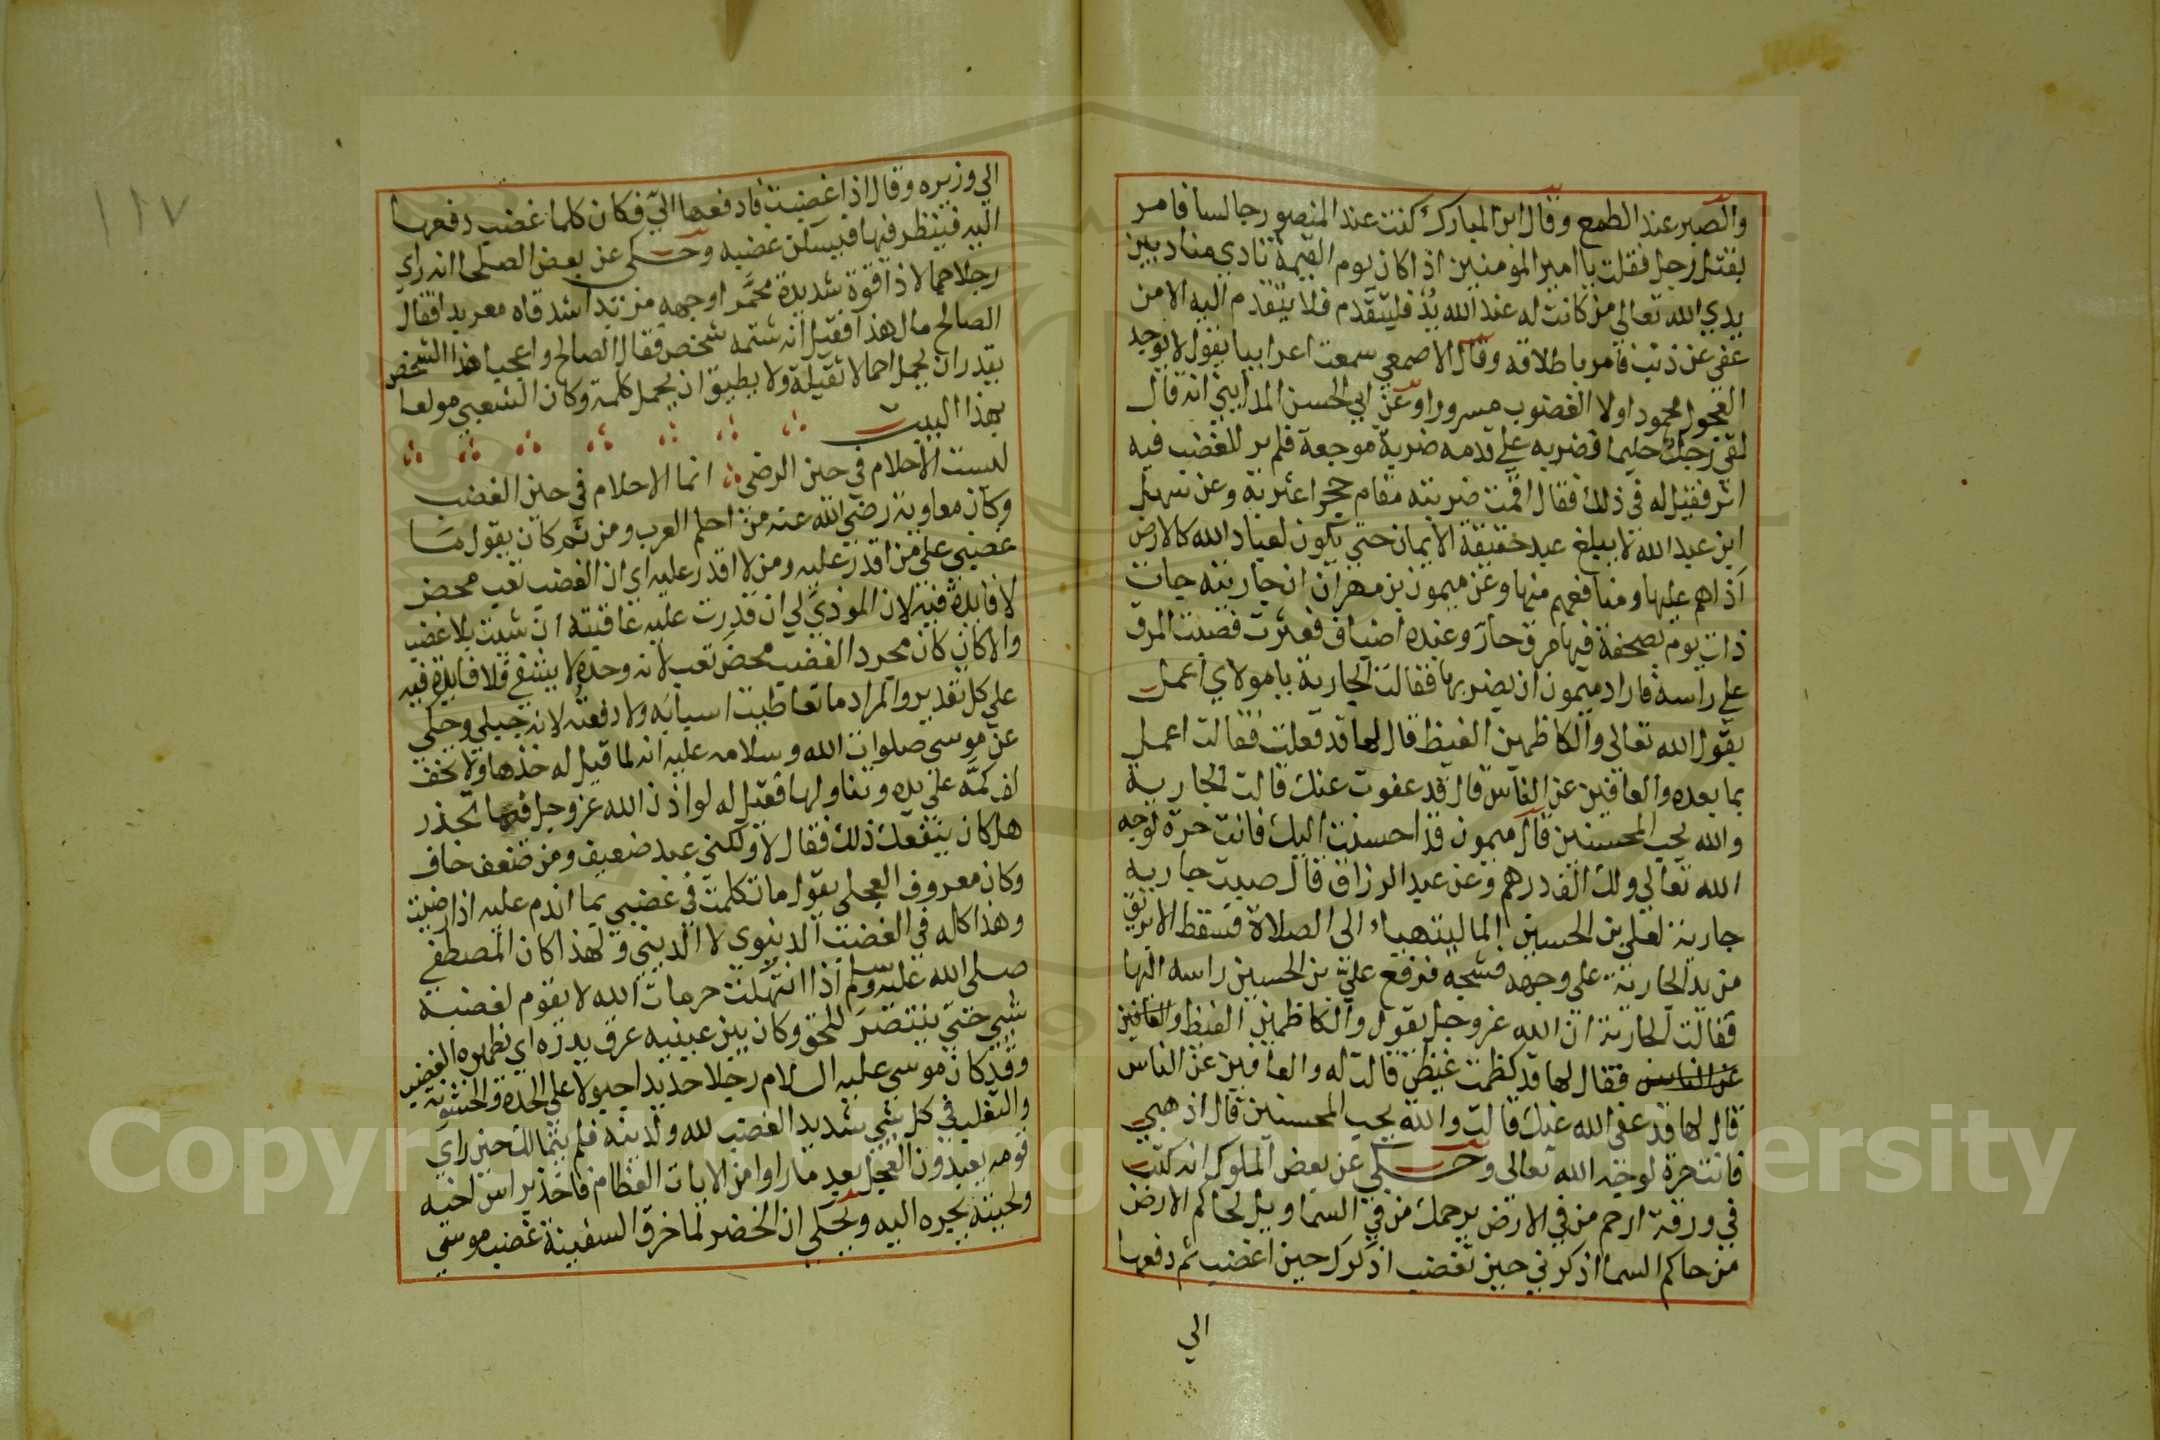 والصبر عند الطمع وقال ابن المبارك كنت عند المنصور جالسا فامر
بقتل رجل فقلت يا امير المومنين اذا كان يوم القيمة نادي مناد بين
يدي الله تعالي من كانت له عند الله يد فليتقدم فلا يتقدم اليه الا من
عفي عن ذنب فامر باطلاقه وقال الاصمعي سمعت اعرابيا يقول لا يوجد
العجول محمودا ولا الغضوب مسرورا وعن ابي الحسن المدايني انه قال
لقي رجل حليما فضربه علي قدمه ضربة موجعة فلم ير للغضب فيه
اثر فقيل له في ذلك فقال اقمت ضربته مقام حجر اعثر به وعن سهل
ابن عبد الله لا يبلغ عبد حقيقة الايمان حتي يكون لعباد الله كالارض
اذاهم عليها ومنافعهم منها وعن ميمون بن مهران ان جاريته جات
ذات يوم بصحفة فيها مرق حار وعنده اضياف فعثرت فصبت المرق
علي راسه فاراد ميمون ان يضربها فقالت الجارية يا مولاي اعمل
بقول الله تعالي والكاظمين الغيظ قال لها قد فعلت فقالت اعمل
بما بعده والعافين عن الناس قال قد عفوت عنك قالت الجارية
والله يحب المحسنين قال ميمون قد احسنت اليك فانت حرة لوجه
الله تعالي ولك الف درهم وعن عبد الرزاق قال صبت جارية
جارية لعلي بن الحسين الما ليتهياء الي الصلاة فسقط الابريق
من يد الجارية علي وجهه فشجه فرفع علي بن الحسين راسه اليها
فقالت الجارية ان الله عز وجل يقول والكاظمين الغيظ والعافين
عن الناس فقال لها قد كظمت غيظي قالت له والعافين عن الناس
قال لها قد عفي الله عنك قالت والله يحب المحسنين قال اذهبي
فانت حرة لوجه الله تعالي وحكي عن بعض الملوك انه كتب
في ورقة ارحم من في الارض يرحمك من في السما ويل لحاكم الارض
من حاكم السما اذكرني حين تغضب اذكرك حين اغضب ثم دفعها
الي
الي وزيره وقال اذا غضبت فادفعها الي فكان كلما غضب دفعها
اليه فينظر فيها فيسكن غضبه وحكي عن بعض الصلحا انه راي
رجلا حمالا ذا قوة شديدة محمرا وجهه مزبدا شدقاه معربدا فقال
الصالح مال هذا فقيل انه شتمه شخص فقال الصالح واعجبا هذا الشخص
يقدر ان يحمل احمالا ثقيلة ولا يطيق ان يحمل كلمة وكان الشعبي مولعا
بهذا البيت
ليست الاحلام في حين الرضي انما الاحلام في حين الغضب
وكان معاوية رضي الله عنه من احلم العرب ومن ثم كان يقول ما
غضبي علي من اقدر عليه ومن لا اقدر عليه اي ان الغضب تعب محض
لا فايدة فيه لان الموذي لي ان قدرت عليه عاقبته ان شيت بلا غضب
والا كان كان مجرد الغضب محض تعب لانه وحده لا يشفع فلا فايدة فيه
علي كل تقدير والمراد ما تعاطيت اسبابه ولا دفعته لانه جبلي وحكي
عن موسي صلوات الله وسلامه عليه انه لما قيل له خذها ولا تخف
لف كمه علي يده وتناولها فقيل له لو اذن الله عز وجل فيما تحذر
هل كان ينفعك ذلك فقال لا ولكني عبد ضعيف ومن ضعف خاف
وكان معروف العجلي يقول ما تكلمت في غضبي بما اندم عليه اذا رضيت
وهذا كله في الغضب الدنيوي لا الديني ولهذا كان المصطفي
صلي الله عليه وسلم اذا انتهكت حرمات الله لا يقوم لغضبه
شي حتي ينتصر للحق وكان بين عينيه عرق يدره اي يظهره الغضب
وقد كان موسي عليه السلام رجلا حديدا جبولا علي الحدة والخشونة
والتغليب في كل شي شديد الغضب لله ولدينه فلم يتمالك حين راي
قومه يعبدون العجل بعد ما راوا من الايات العظام فاخذ براس اخيه
ولحيته يجره اليه ويحكي ان الخضر لما خرق السفينة غضب موسي
١١٧
Copyright © King Saud University